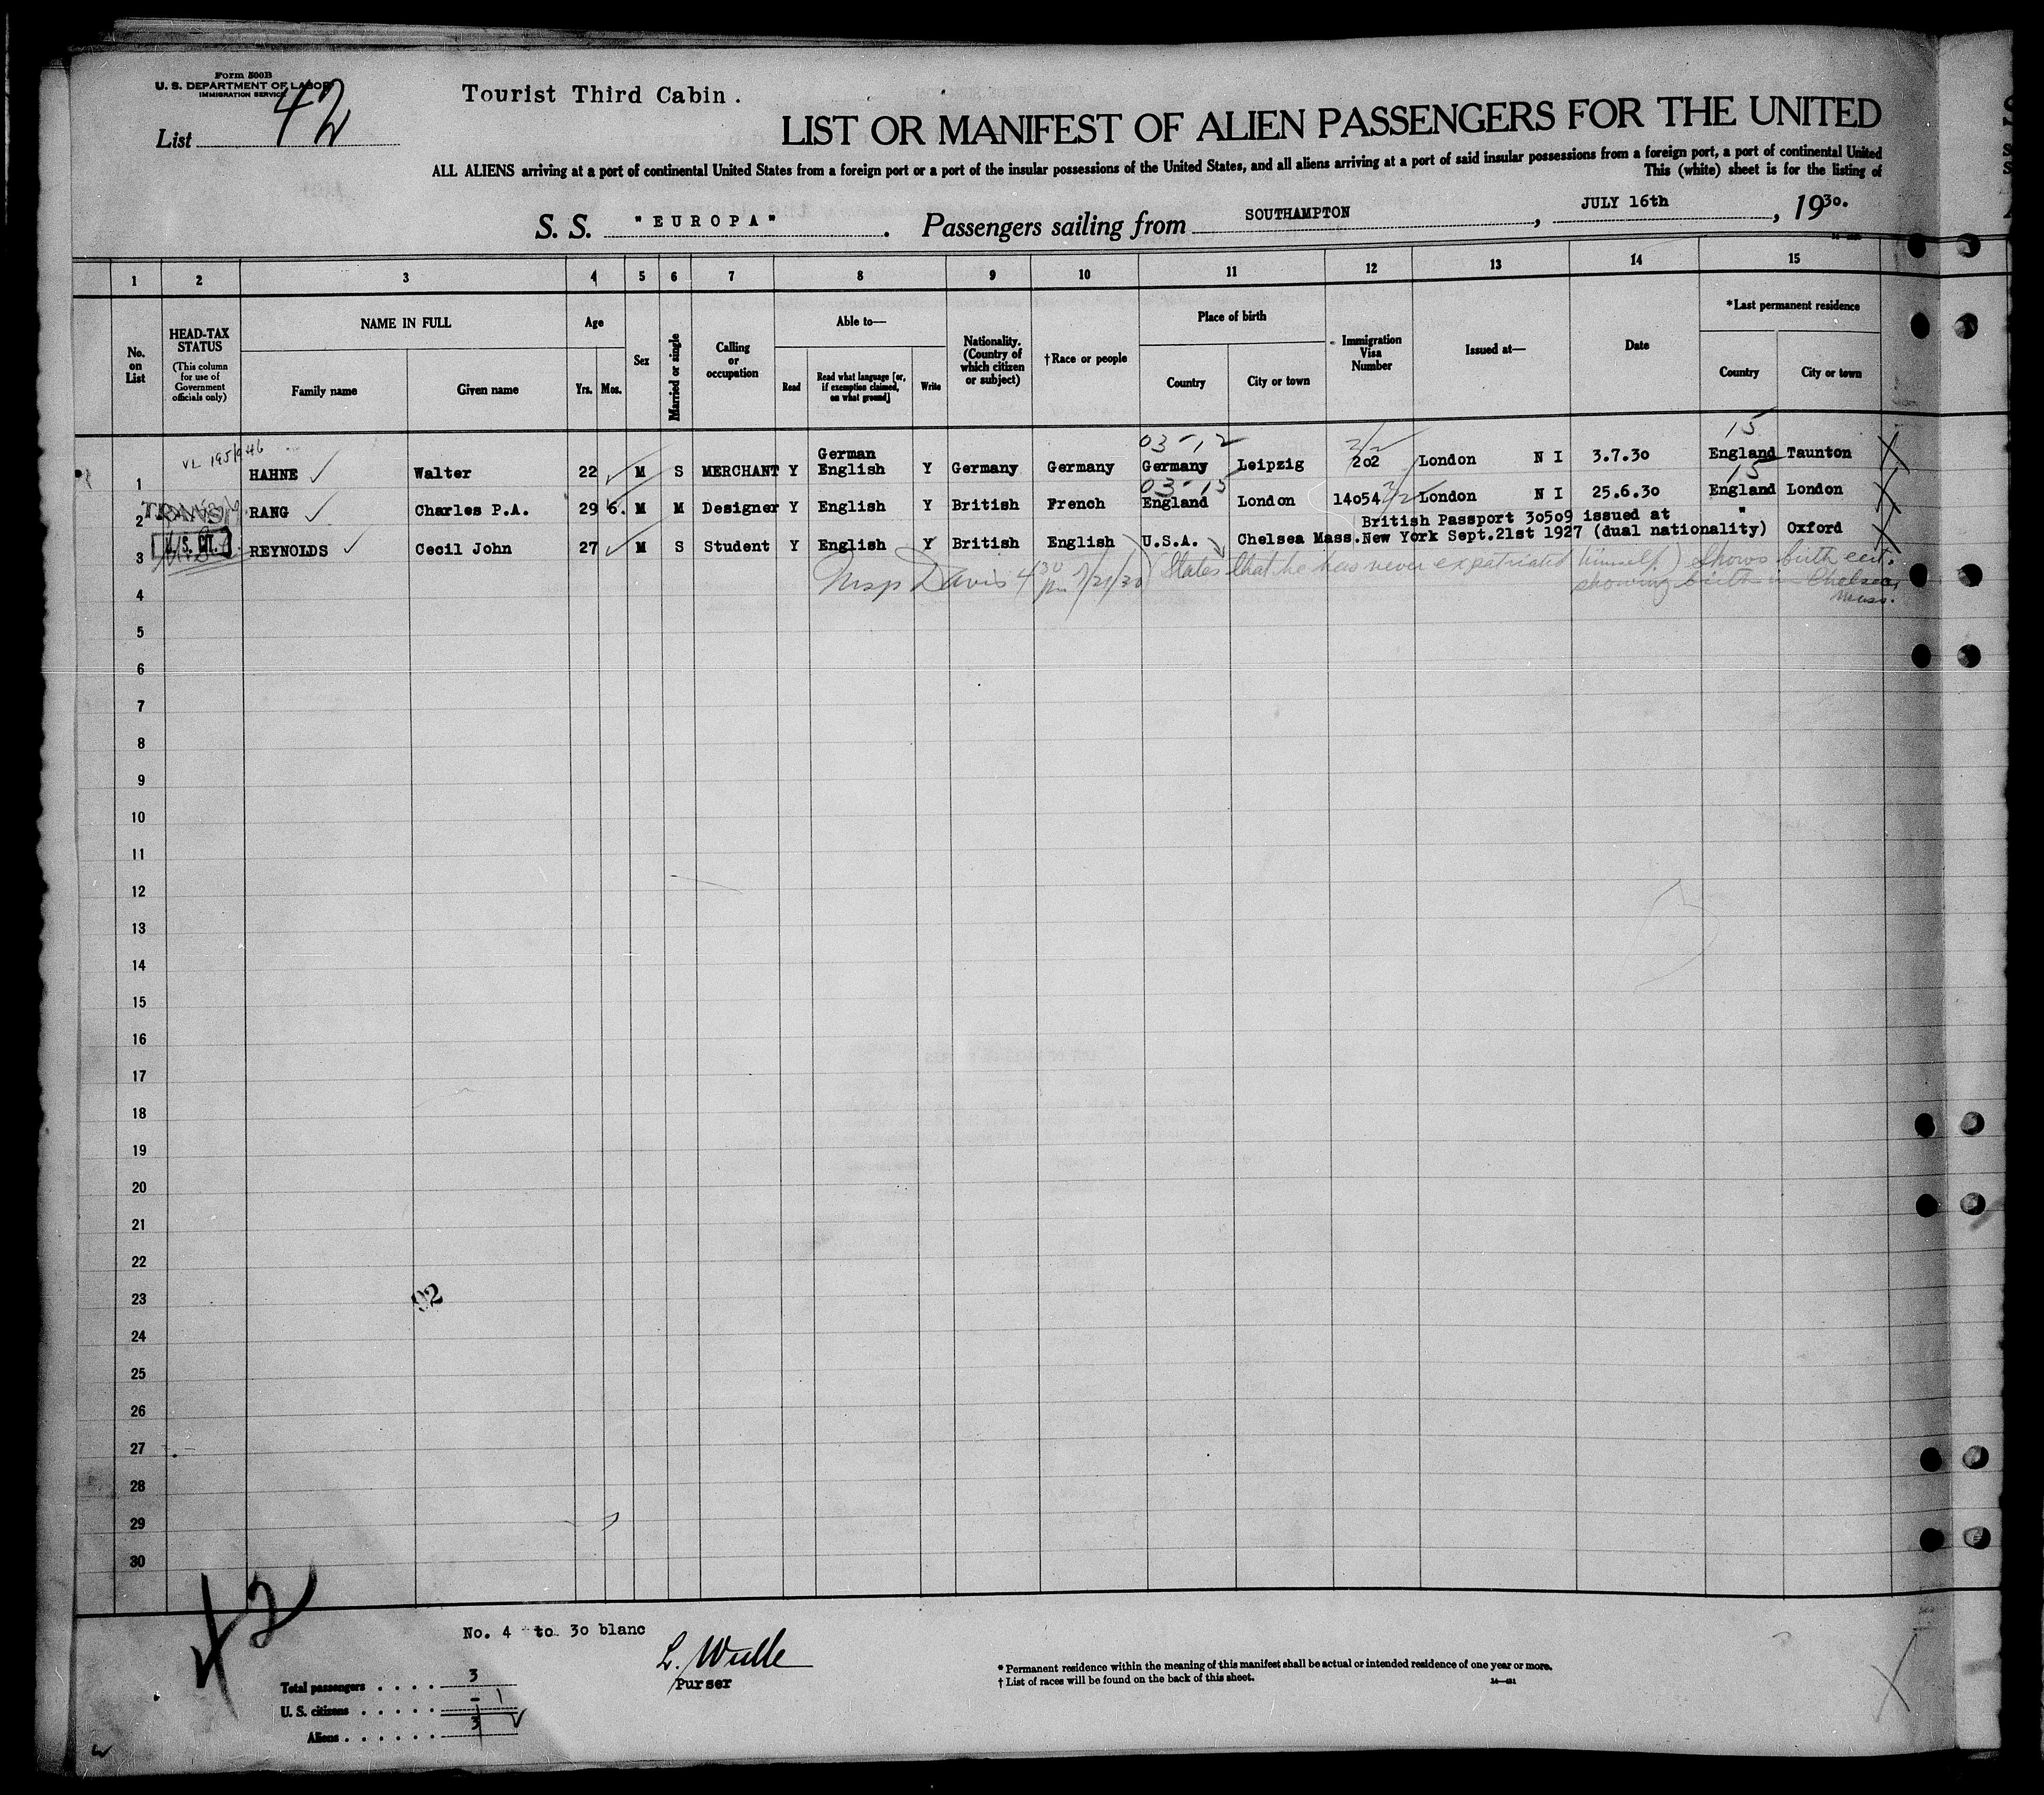 Form 500B
U. S. DEPARTMENT OF LABOR
IMMIGRATION SERVICE
List 42
Tourist Third Cabin.
LIST OR MANIFEST OF ALIEN PASSENGERS FOR THE UNITED
ALL ALIENS arriving at a port of continental United States from a foreign port or a port of the insular possessions of the United States, and all aliens arriving at a port of said insular possessions from a foreign port, a port of continental United
This (white) sheet is for the listing of
S. S. "EUROPA". Passengers sailing from SOUTHAMPTON, JULY 16th, 1930.
1 2 3 4 5 6 7 8 9 10 11 12 13 14 15
No. on List
HEAD-TAX STATUS (This column for use of Government officials only)
NAME IN FULL
Family name Given name
Age
Yrs. Mos.
Sex
Married or single
Calling or occupation
Able to—
Read Read what language [or, if exemption claimed, on what ground] Write
Nationality. (Country of which citizen or subject)
†Race or people
Place of birth
Country City or town
Immigration Visa Number
Issued at—
Date
*Last permanent residence
Country City or town
03-12 15
German
1 HAHNE Walter 22 M S MERCHANT Y English Y Germany Germany Germany Leipzig 202 London N I 3.7.30 England Taunton
03-15 15
2 TRANSIT RANG Charles P.A. 29 6. M M Designer Y English Y British French England London 14054 London N I 25.6.30 England London
British Passport 30509 issued at "
3 U.S. CIT. REYNOLDS Cecil John 27 M S Student Y English Y British English U.S.A. Chelsea Mass. New York Sept.21st 1927 (dual nationality) Oxford
Insp Davis 4 30 pm 7/21/30 (States that he has never expatriated himself.) Shows birth cert.
showing birth in Chelsea,
Mass.
4
5
6
7
8
9
10
11
12
13
14
15
16
17
18
19
20
21
22
23
92
24
25
26
27
28
29
30
42
No. 4 to 30 blanc
L. Wulle
Purser
Total passengers . . . . 3
U. S. citizens . . . . . - 1
Aliens . . . . . . 3
* Permanent residence within the meaning of this manifest shall be actual or intended residence of one year or more.
† List of races will be found on the back of this sheet.